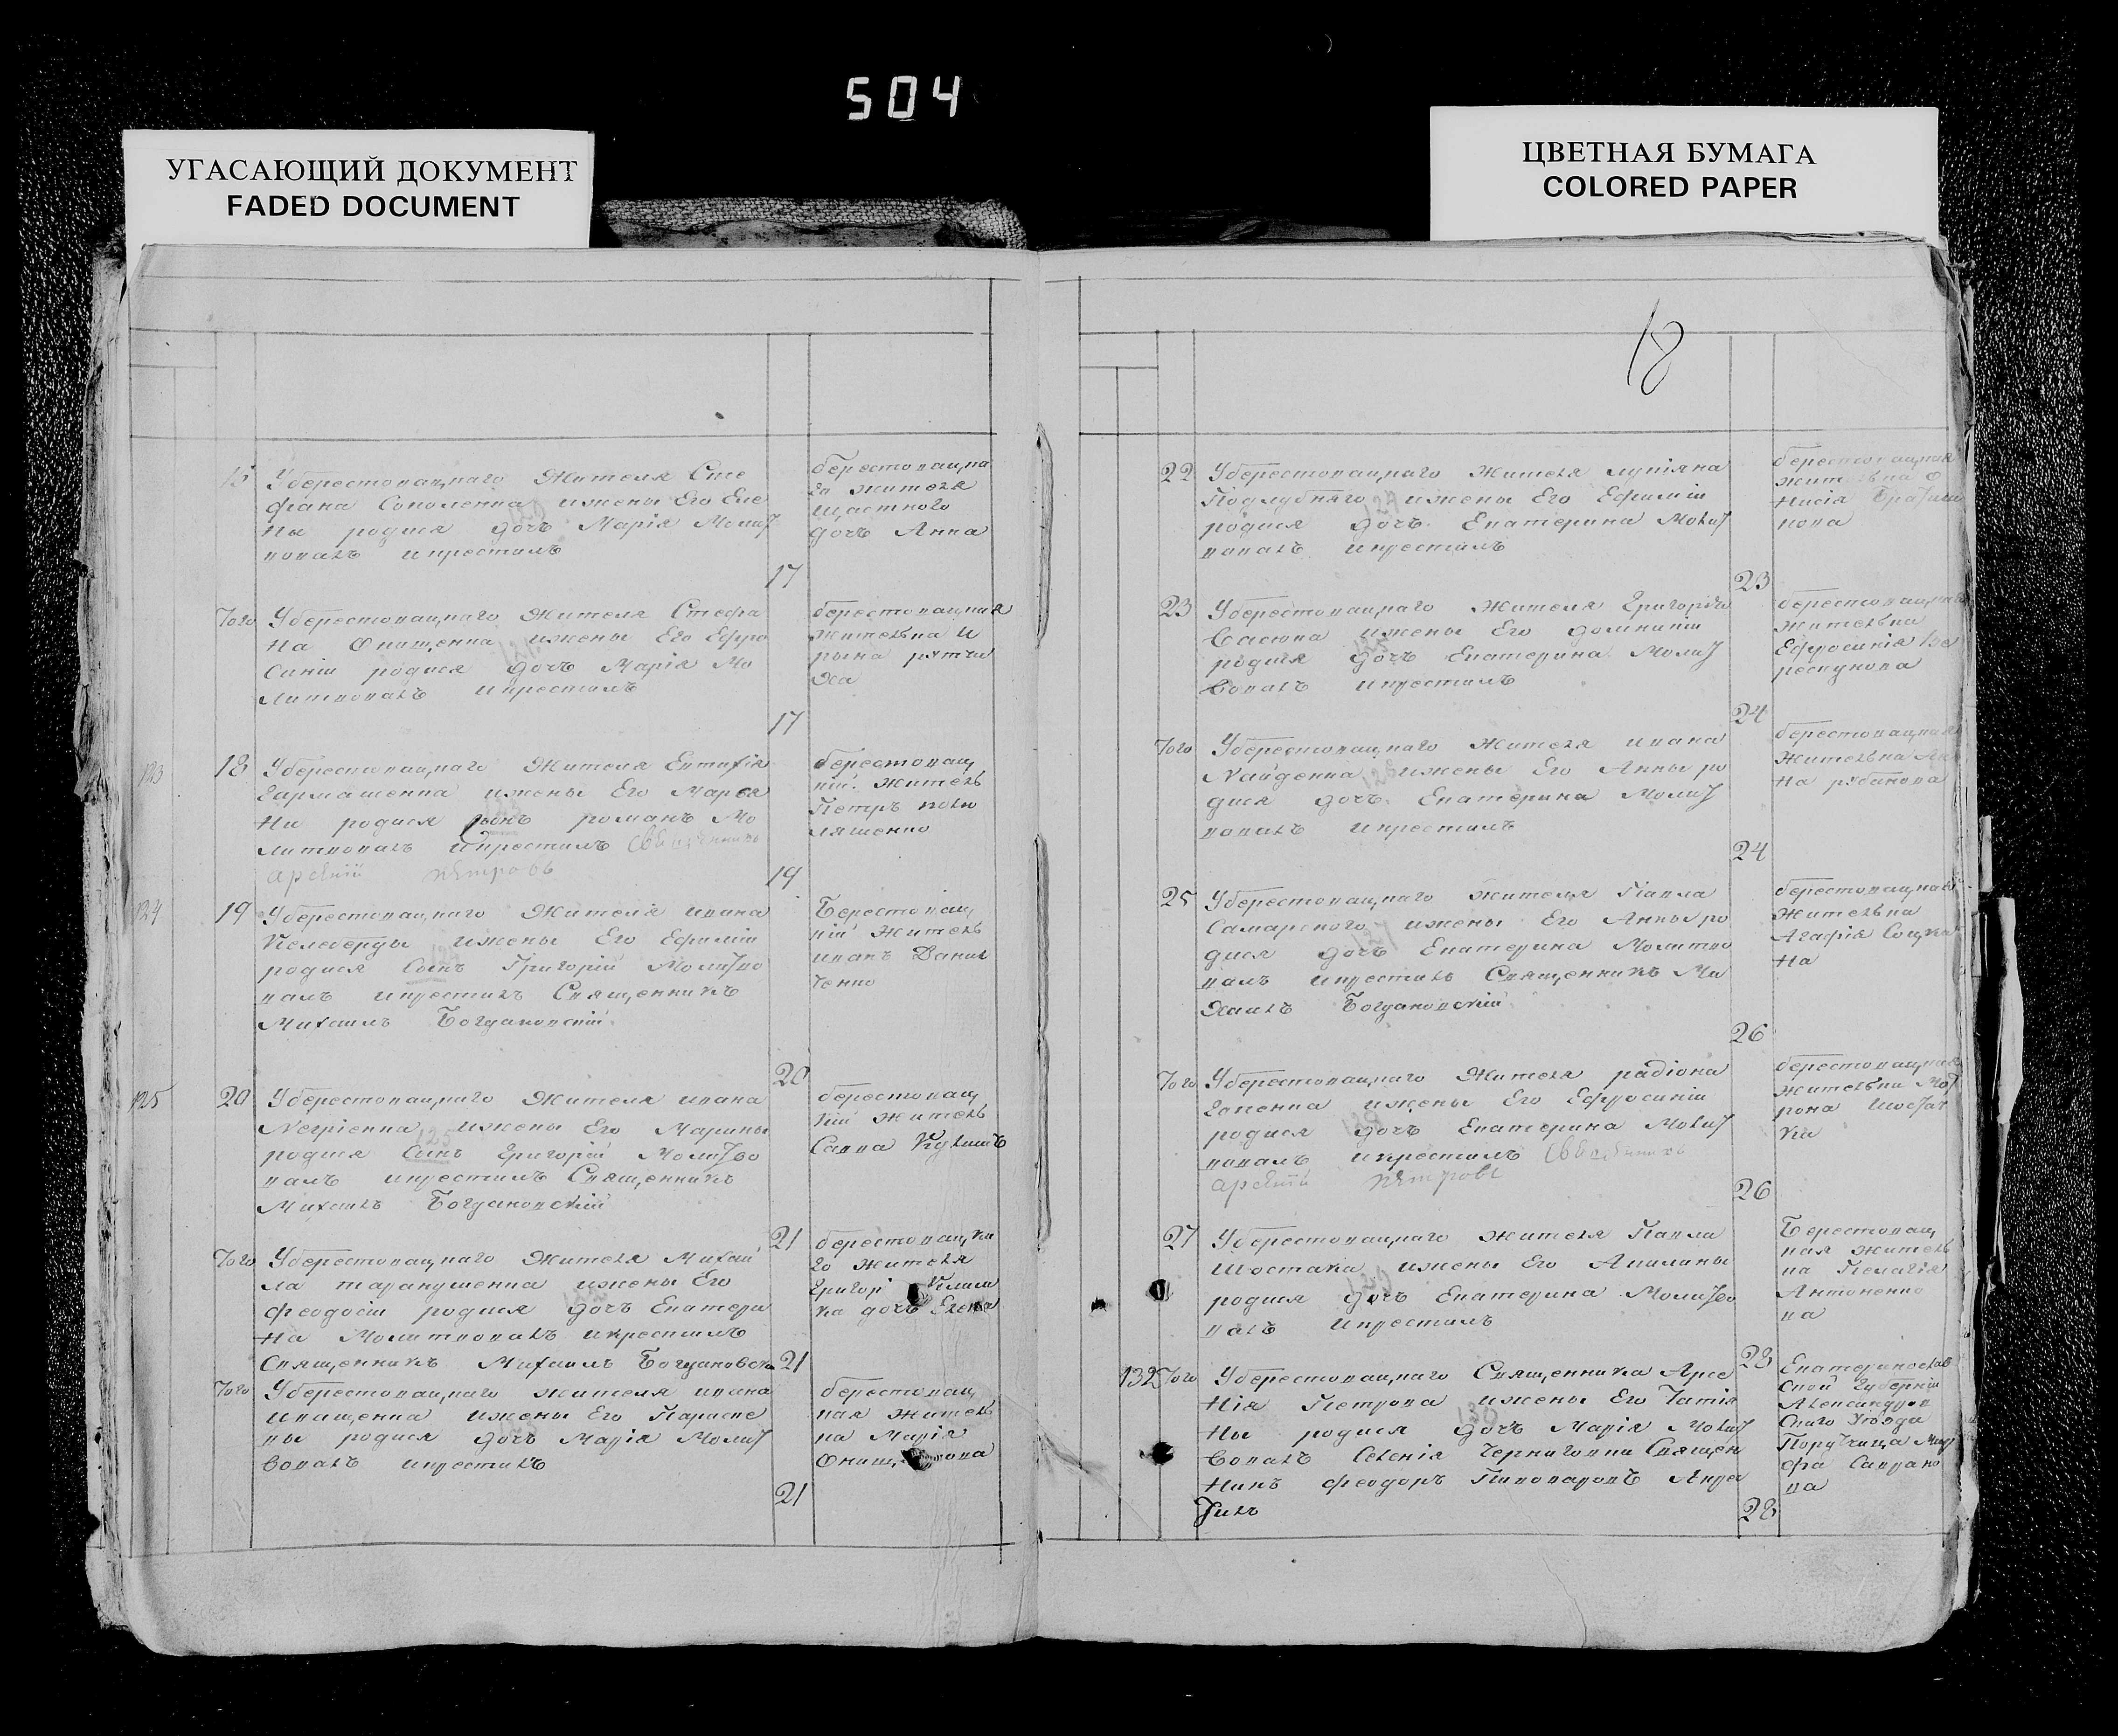 504
УГАСАЮЩИЙ ДОКУМЕНТ
FADED DOCUMENT
ЦВЕТНАЯ БУМАГА
COLORED PAPER
18
15 Уберестовацкаго Жителя Сте
фана Соколенка ижены Его Еле
ны родися дочь Марія Молит
вовалъ икрестилъ
17
берестовацка
го жителя
Щастного
дочь Анна
Того Уберестовацкаго Жителя Стефа
на Онищенка ижены Его Ефро
синіи родися дочь Марія Мо
литвовалъ икрестилъ
17
берестовацкая
жителька И
рына
ха
123 18 Уберестовацкаго Жителя Евтихія
Гармашенка ижены Его Марья
ны родися сынъ романъ Мо
литвовалъ икрестилъ Священникъ
арсеній петровъ
19
берестовац
кій Житель
Петръ коли
ляшенко
124 19 Уберестовацкаго Жителя ивана
Келеберды ижены Его Ефиміи
родися Сынъ Григорій Молитво
валъ икрестилъ Священникъ
Михаилъ Богдановскій
20
Берестовац
кій Житель
иванъ Данил
ченко
125 20 Уберестовацкаго Жителя ивана
ижены Его Марины
родися Сынъ Григорій Молитво
валъ икрестилъ Священникъ
Михаилъ Богдановскій
21
берестовац
кій Житель
Савва
Того Уберестовацкаго Жителя Михай
ла таранушенка ижены Его
феодосіи родися дочь Екатери
на Молитвовалъ икрестилъ
Священникъ Михаилъ Богдановск
21
берестовацка
го жителя
Григор
ка дочь Елена
Того Уберестовацкаго жителя ивана
иващенка ижены Его Параске
вы родися дочь Марія Молит
вовалъ икрестилъ
21
берестовац
кая житель
ка Марія
Онищ кова
22 Уберестовацкаго жителя лукіяна
Поддубнаго ижены Его Ефиміи
родися дочь Екатерина Молит
вовалъ икрестилъ
23
берестовацкая
жителька
23 Уберестовацкаго Жителя Григорія
Васюка ижены Его домникіи
родися дочь Екатерина Молит
вовалъ икрестилъ
24
берестовацкая
жителька
Ефросинія
Того Уберестовацкаго жителя ивана
Найденка ижены Его Анны ро
дися дочь Екатерина Молит
вовалъ икрестилъ
24
берестовацкая
Жителька Ан
на рябакова
25 Уберестовацкаго жителя Павла
Самарского ижены Его Анны ро
дися дочь Екатерина Молитво
валъ икрестилъ Священникъ Ми
хаилъ Богдановскій
26
берестовацкая
жителька
Агафія
на
Того Уберестовацкаго Жителя радіона
Гапенка ижены Его Ефросиніи
родися дочь Екатерина Молит
вовалъ икрестилъ Священникъ
арсеній петровъ
26
берестовацкая
жителька Мат
рона Шостач
ка
27 Уберестовацкаго жителя Павла
Шостака ижены Его Акилины
родися дочь Екатерина Молитво
валъ икрестилъ
28
Берестовац
кая житель
ка Пелагія
Антоненко
ва
132 Того Уберестовацкаго Священника Арсе
нія Петрова ижены Его Татія
ны родися дочь Марія Молит
вовалъ Селенія Черниговки Священ
никъ феодоръ Пивоваровъ Икрес
тилъ
28
Екатеринослав
ской Губерніи
Александров
скаго Уѣзда
Поручица